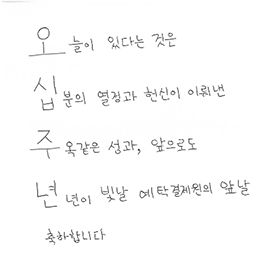 오늘이 있다는 것은
십분의 열정과 헌신이 이뤄낸
주옥같은 성과, 앞으로도
년년이 빛날 예탁결제원의 앞날
축하합니다